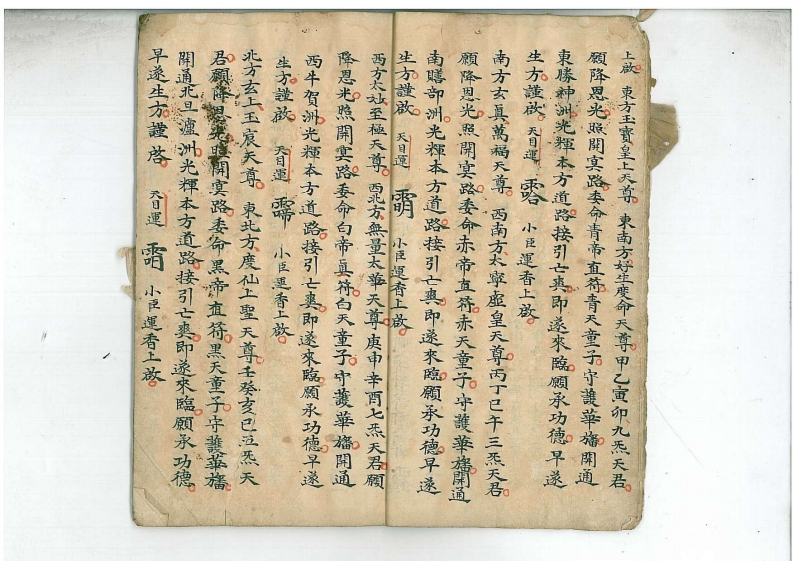 上啟 東方玉寶皇上天尊 東南方好生度命天尊 甲乙寅卯九炁天君
願降恩光照開冥路委命青帝直符青天童子守護華旛開通
東勝神洲光輝本方道路接引亡䰟即遂來臨願承功德早遂
生方謹啟 天目運 小臣運香上啟
南方玄真萬福天尊 西南方太靈虛皇天尊丙丁巳午三炁天君
願降恩光照開冥路委命赤帝直符赤天童子守護華旛開通
南贍部洲光輝本方道路接引亡䰟即遂來臨願承功德早遂
生方謹啟 天目運 小臣運香上啟
西方太妙至極天尊 西北方無量太華天尊庚申辛酉七炁天君願
降恩光照開冥路委命白帝直符白天童子守護華旛開通
西牛賀洲光輝本方道路接引亡䰟即遂來臨願承功德早遂
生方謹啟 天目運 小臣運香上啟
北方玄上玉宸天尊 東北方度仙上聖天尊壬癸亥巳五炁天
君願降恩光照開冥路委命黑帝直符黑天童子守護華旛
開通北旦瀘洲光輝本方道路接引亡䰟即遂來臨願承功德
早遂生方謹啓 天目運 小臣運香上啟